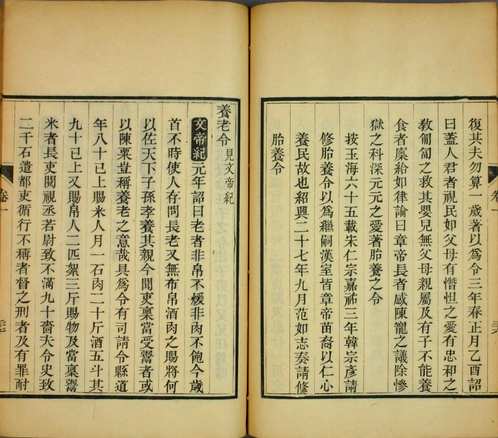 復其夫勿算一歲著以爲令三年春正月乙酉詔
曰蓋人君者視民如父母有憯怛之愛有忠和之
敎匍匐之救其嬰兒無父母親屬及有子不能養
食者稟給如律論曰章帝長者感陳寵之議除慘
獄之科深元元之愛著胎養之令
按玉海六十五載宋仁宗嘉祐三年韓宗彥請
修胎養令以爲繼嗣漢室皆章帝苗裔以仁心
養民故也紹興二十七年九月范如志奏請修
胎養令
養老令 見文帝紀
文帝紀元年詔曰老者非帛不煖非肉不飽今歲
首不時使人存問長老又無布帛酒肉之賜將何
以佐天下子孫孝養其親今聞吏稟當受鬻者或
以陳粟豈稱養老之意哉具爲令有司請令縣道
年八十已上賜米人月一石肉二十斤酒五斗其
九十已上又賜帛人二匹絮三斤賜物及當稟鬻
米者長吏閱視丞若尉致不滿九十嗇夫令史致
二千石遣都吏循行不稱者督之刑者及有罪耐
卷一